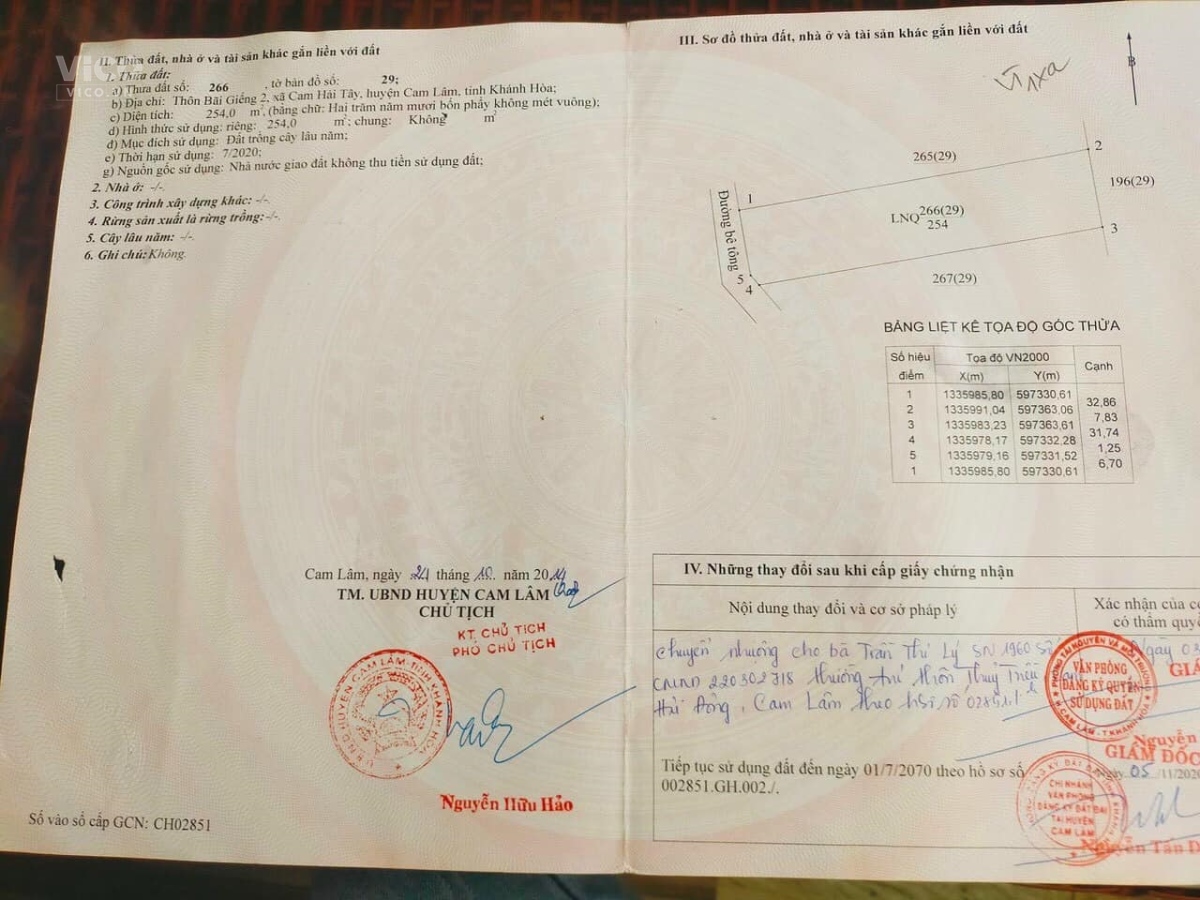 II. Thửa đất, nhà ở và tài sản khác gắn liền với đất
1. Thửa đất:
a) Thửa đất số: 266 , tờ bản đồ số: 29;
b) Địa chỉ: Thôn Bãi Giếng 2, xã Cam Hải Tây, huyện Cam Lâm, tỉnh Khánh Hòa;
c) Diện tích: 254,0 m², (bằng chữ: Hai trăm năm mươi bốn phẩy không mét vuông);
d) Hình thức sử dụng: riêng: 254,0 m²; chung: Không m²
đ) Mục đích sử dụng: Đất trồng cây lâu năm;
e) Thời hạn sử dụng: 7/2020;
g) Nguồn gốc sử dụng: Nhà nước giao đất không thu tiền sử dụng đất;
2. Nhà ở: -/-.
3. Công trình xây dựng khác: -/-.
4. Rừng sản xuất là rừng trồng: -/-.
5. Cây lâu năm: -/-.
6. Ghi chú: Không.
Cam Lâm, ngày 24 tháng 10 năm 2014
TM. UBND HUYỆN CAM LÂM
CHỦ TỊCH
KT. CHỦ TỊCH
PHÓ CHỦ TỊCH
U.B.N.D HUYỆN CAM LÂM-TỈNH KHÁNH HÒA
Nguyễn Hữu Hảo
Số vào sổ cấp GCN: CH02851
III. Sơ đồ thửa đất, nhà ở và tài sản khác gắn liền với đất
B
265(29)
2
196(29)
1
LNQ 266(29)
254
3
Đường bê tông
5
4
267(29)
BẢNG LIỆT KÊ TỌA ĐỘ GÓC THỬA
Số hiệu điểm Tọa độ VN2000 Cạnh
X(m) Y(m)
1 1335985,80 597330,61
32,86
2 1335991,04 597363,06
7,83
3 1335983,23 597363,61
31,74
4 1335978,17 597332,28
1,25
5 1335979,16 597331,52
6,70
1 1335985,80 597330,61
IV. Những thay đổi sau khi cấp giấy chứng nhận
Nội dung thay đổi và cơ sở pháp lý
Xác nhận của c
có thẩm quy
Chuyển nhượng cho bà Trần Thị Lý SN 1960 Số
CMND 220302718 thường trú thôn Thuỷ Triều
Hải Đông, Cam Lâm theo hồ sơ số 02851
Ngày 03
GIÁ
PHÒNG TÀI NGUYÊN VÀ MÔI TRƯỜNG
VĂN PHÒNG
ĐĂNG KÝ QUYỀN
SỬ DỤNG ĐẤT
H.CAM LÂM-T.KHÁNH HÒA
Nguyễn
GIÁM ĐỐC
Tiếp tục sử dụng đất đến ngày 01/7/2070 theo hồ sơ số
002851.GH.002./.
Ngày 05 /11/2020
CHI NHÁNH
VĂN PHÒNG
ĐĂNG KÝ ĐẤT ĐAI
TẠI HUYỆN
CAM LÂM
Nguyễn Tấn Đ